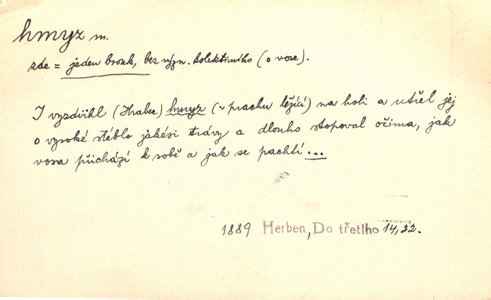 hmyz m.
zde = jeden brouk, bez význ. kolektivního (o vose).
I vyzdvihl (Hrabec) hmyz (v prachu ležící) na holi a utřel jej
o vysoké stéblo jakési trávy a dlouho stopoval očima, jak
vosa přichází k sobě a jak se pachtí ...
1889 Herben, Do třetího 14,22.